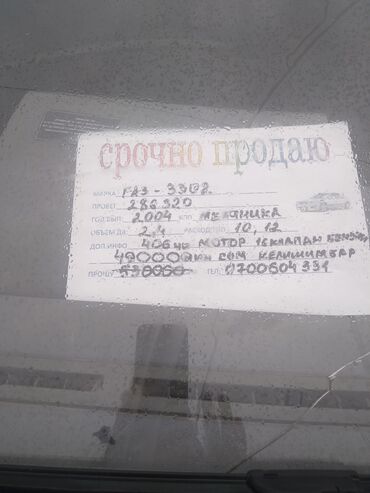 срочно продаю
МАРКА ГАЗ-3302
ПРОБЕГ 286320
ГОД ВЫП. 2004 КПП МЕХАНИКА
ОБЪЕМ ДВ. 2.4 РАСХОД 10,12
ДОП.ИНФО 406 МОТОР 16 КЛАПАН БЕНЗИН
490000 СОМ КЕЛИШИМ БАР
ПРОШУ 530000 ТЕЛ. 0700604331